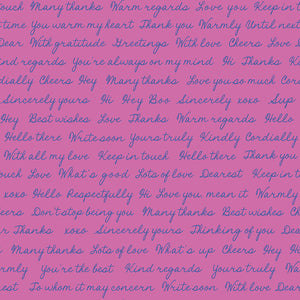 touch Many thanks Warm regards Love you Keep in t
time You warm my heart Thank you Warmly Until next
Dear With gratitude Greetings With love Cheers Love
ind regards You're always on my mind Hi Thanks K
dially Cheers Hey Many thanks Love you so much Cor
Sincerely yours Hi Hey Boo Sincerely xoxo Sup
Hey Best wishes Love Thanks Warm regards Hello
Hello there Write soon Yours truly Kindly Cordially
With all my love Keep in touch Hello there Thank you
ouch Love What's good Lots of love Dearest Keep in t
xoxo Hello Respectfully Hi Love you, mean it Warmly
eers Don't stop being you Many thanks Best wishes Ch
r Thanks xoxo Sincerely yours Thinking of you Dea
Many thanks Lots of love What's up Cheers Hey H
rmly You're the best Kind regards Yours truly Wa
est To whom it may concern Write soon With love Dear